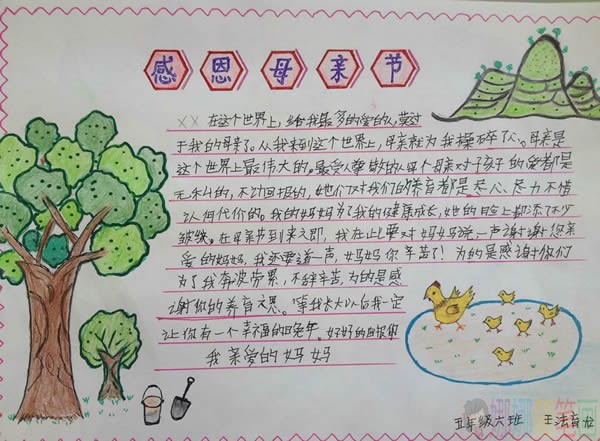 感恩母亲节
×× 在这个世界上，给我最多的爱的人，莫过
于我的母亲了。从我来到这个世界上，母亲就为我操碎了心。母亲是
这个世界上最伟大的，最受人尊敬的人，每个母亲对于孩子的爱都是
无私的，不求回报的，她们对我们的养育都是尽心、尽力不惜
任何代价的。我的妈妈为了我的健康成长，她的脸上都添了不少
皱纹。在母亲节到来之即，我在此要对妈妈说一声谢谢您亲
爱的妈妈，我还要道一声，妈妈你辛苦了！为的是感谢你们
为了我奔波劳累，不辞辛苦，为的是感
谢你的养育之恩。等我长大以后我一定
让你有一个幸福的晚年。好好的
我亲爱的妈妈
五年级六班 王法